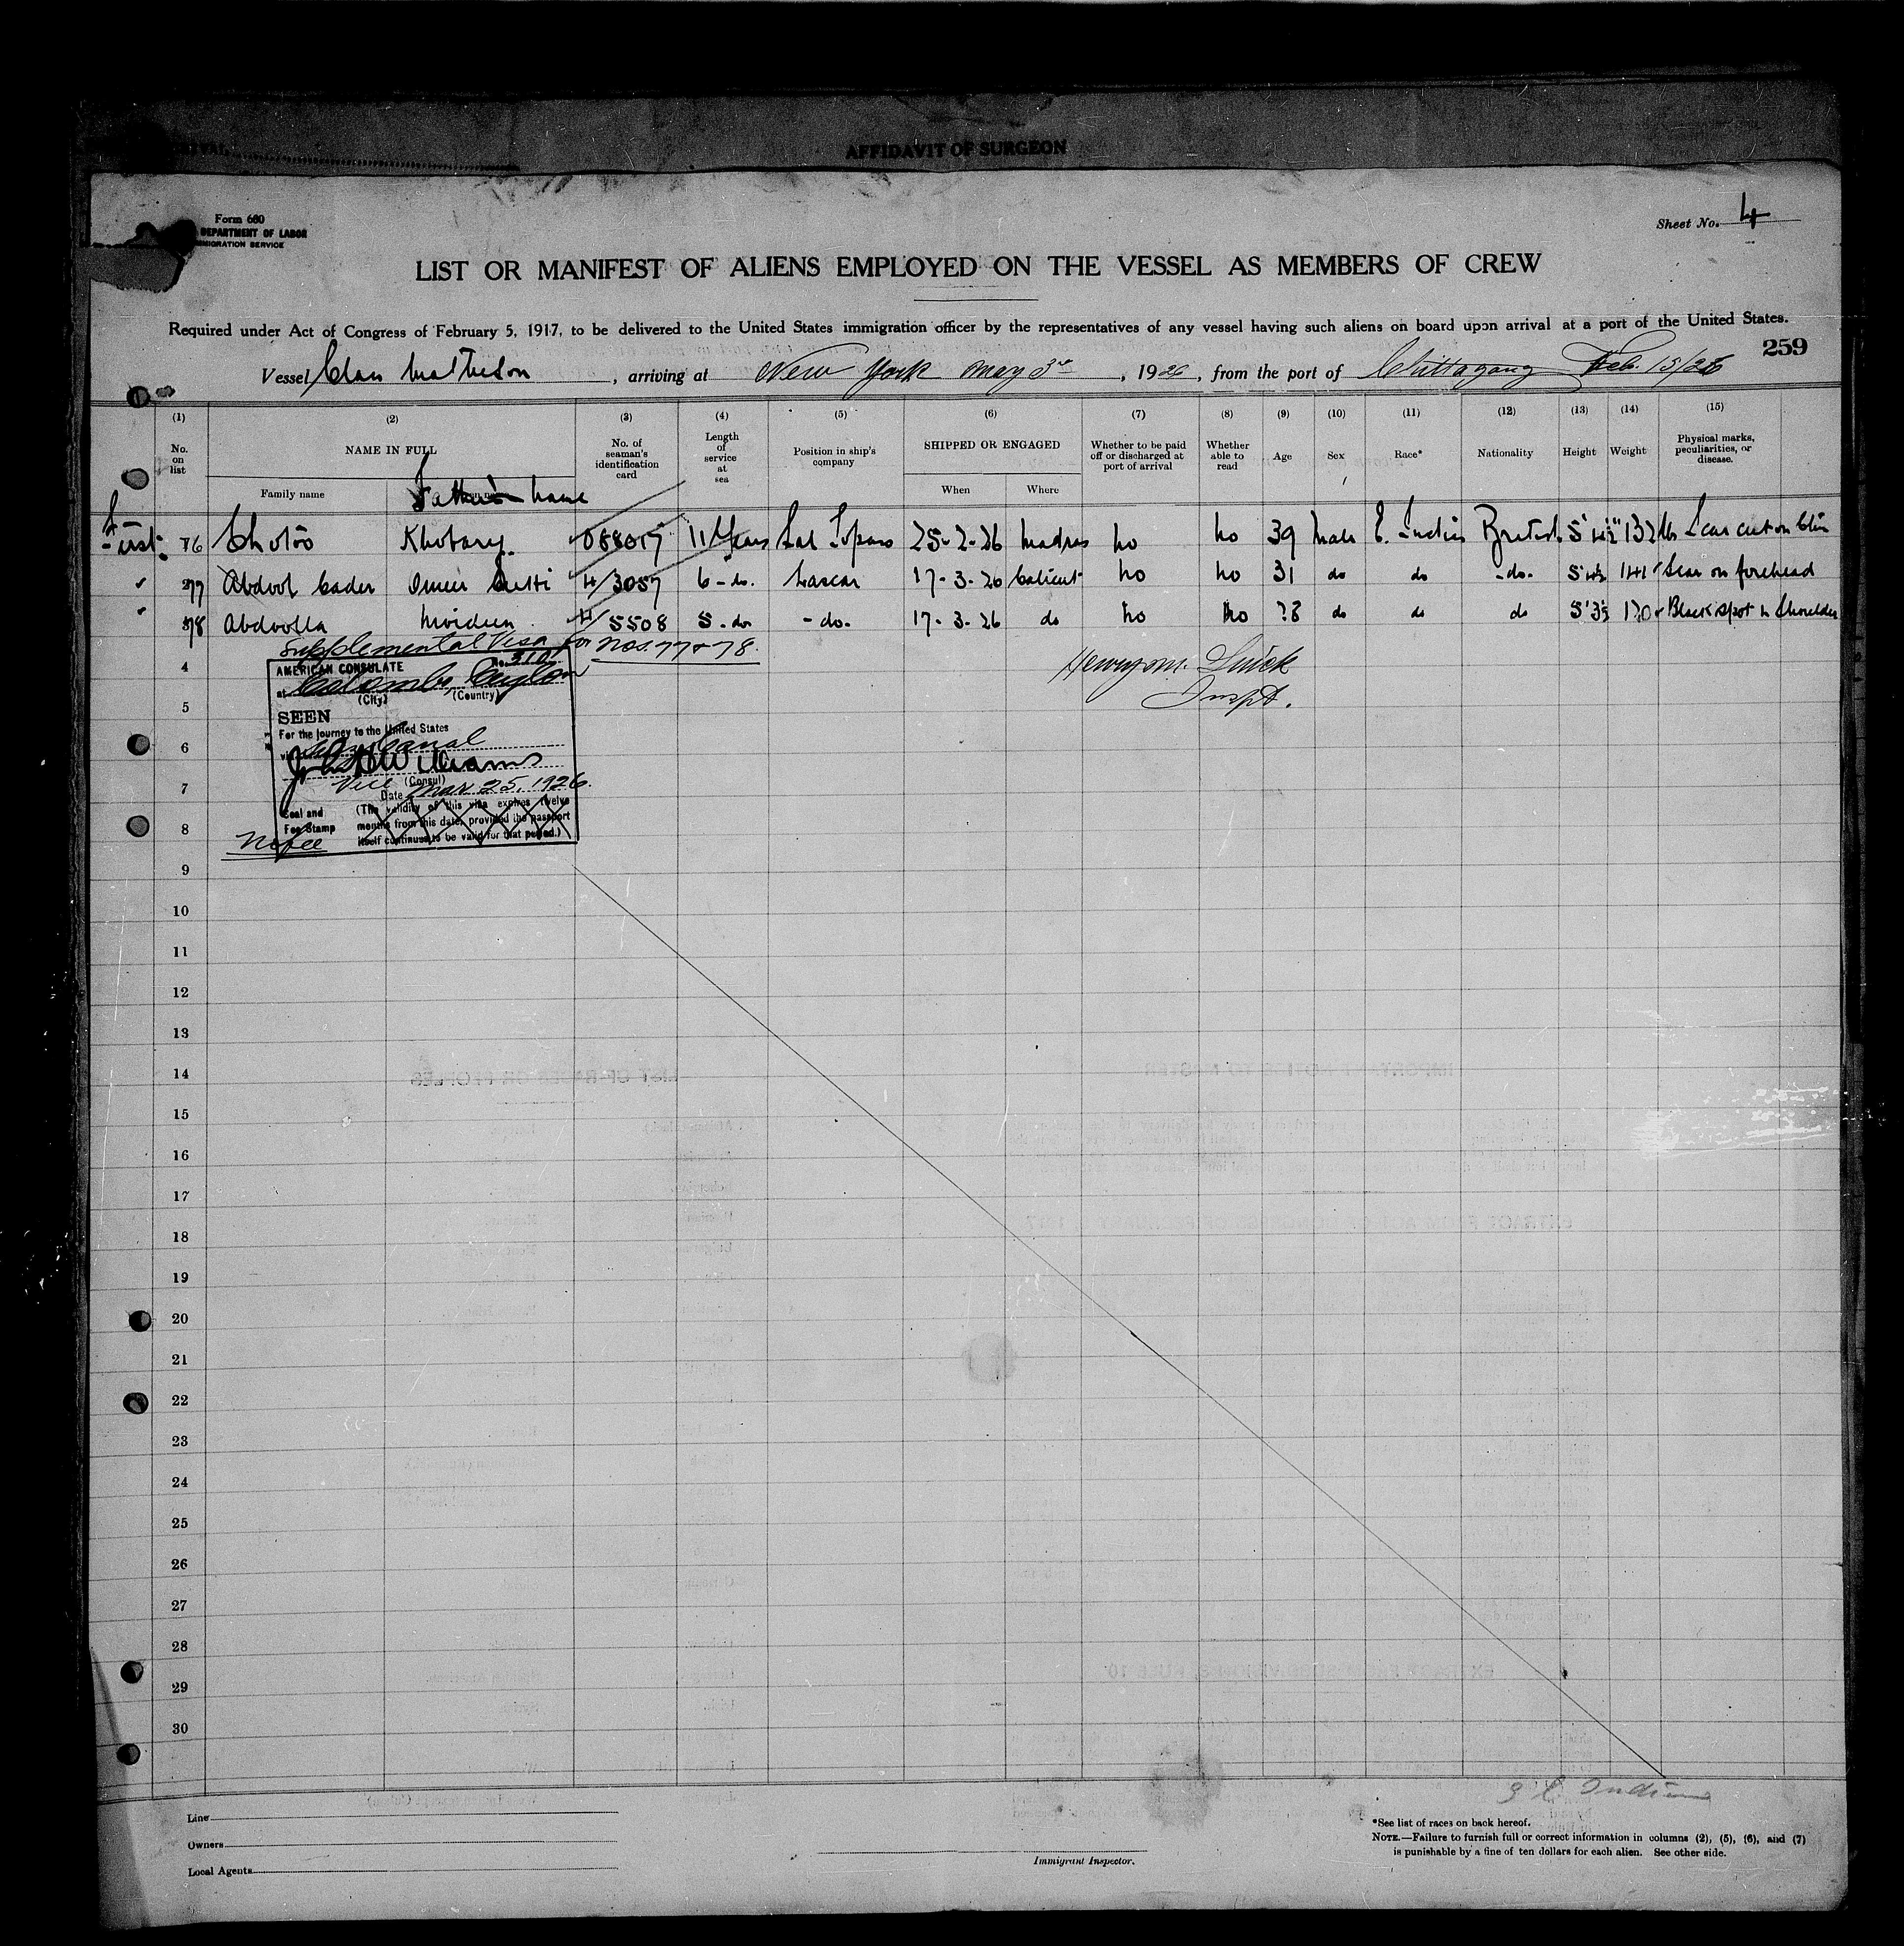 AFFIDAVIT OF SURGEON
Form 680
DEPARTMENT OF LABOR
IMMIGRATION SERVICE
Sheet No. 4
LIST OR MANIFEST OF ALIENS EMPLOYED ON THE VESSEL AS MEMBERS OF CREW
Required under Act of Congress of February 5, 1917, to be delivered to the United States immigration officer by the representatives of any vessel having such aliens on board upon arrival at a port of the United States.
259
Vessel Clan Matheson, arriving at New York May 3rd, 1926, from the port of Chittagong Feb. 15/26
(1) (2) (3) (4) (5) (6) (7) (8) (9) (10) (11) (12) (13) (14) (15)
No. on list NAME IN FULL No. of seaman's identification card Length of service at sea Position in ship's company SHIPPED OR ENGAGED Whether to be paid off or discharged at port of arrival Whether able to read Age Sex Race* Nationality Height Weight Physical marks, peculiarities, or disease.
Family name Father's name When Where
First 76 Chotoo 11 Years 25-2-26 Madras no no 39 Male E. Indian British 5'4½" 132 lbs Scar cut on Chin
" 77 Abdool Cader 4/3057 6-do. Lascar 17-3-26 Calicut no no 31 do do -do- 5'4½ 141 " Scar on forehead
" 78 Abdoolla Moideen 4/5508 5-do- -do- 17-3-26 do no no 28 do do do 5'3½ Black spot Shoulder
Supplemental Visa for Nos. 77 & 78.
AMERICAN CONSULATE
at Colombo, Ceylon
(City) (Country)
SEEN
For the journey to the United States
via Suez Canal
John H Williams
Vice (Consul)
Date Mar. 25, 1926.
Seal and Fee Stamp
(The validity of this visa expires twelve
months from this date, provided the passport
itself continues to be valid for that period.)
No fee
Inspt.
4
5
6
7
8
9
10
11
12
13
14
15
16
17
18
19
20
21
22
23
24
25
26
27
28
29
30
3 E. Indians
Line
Owners
Local Agents
Immigrant Inspector.
*See list of races on back hereof.
NOTE.—Failure to furnish full or correct information in columns (2), (5), (6), and (7)
is punishable by a fine of ten dollars for each alien. See other side.